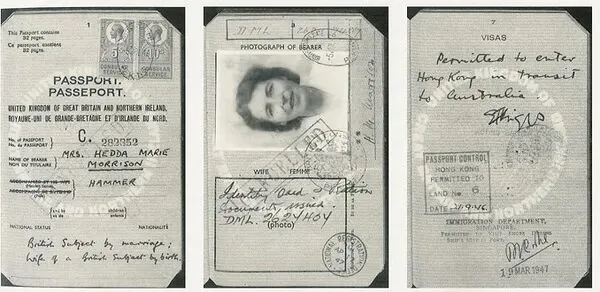 1
This Passport contains
32 pages.
Ce passeport contient
32 pages.
CONSULAR
SERVICE
CONSULAR
SERVICE
PASSPORT.
PASSEPORT.
UNITED KINGDOM OF GREAT BRITAIN AND NORTHERN IRELAND,
ROYAUME-UNI DE GRANDE-BRETAGNE ET D'IRLANDE DU NORD.
No. of PASSPORT
No. du PASSEPORT
C.
NAME OF BEARER
NOM DU TITULAIRE
MRS. HEDDA MARIE
MORRISON
HAMMER
NATIONAL STATUS
NATIONALITÉ
British Subject by marriage;
Wife of a British Subject by birth.
3
PHOTOGRAPH OF BEARER
WIFE FEMME
Identity Card &
documents issued.
DML 2624
(photo)
7
VISAS
Permitted to enter
Hong Kong in transit
to Australia.
PASSPORT CONTROL
HONG KONG
PERMITTED TO
LAND No 6
DATE 21.9.46.
IMMIGRATION DEPARTMENT,
SINGAPORE.
19 MAR 1947